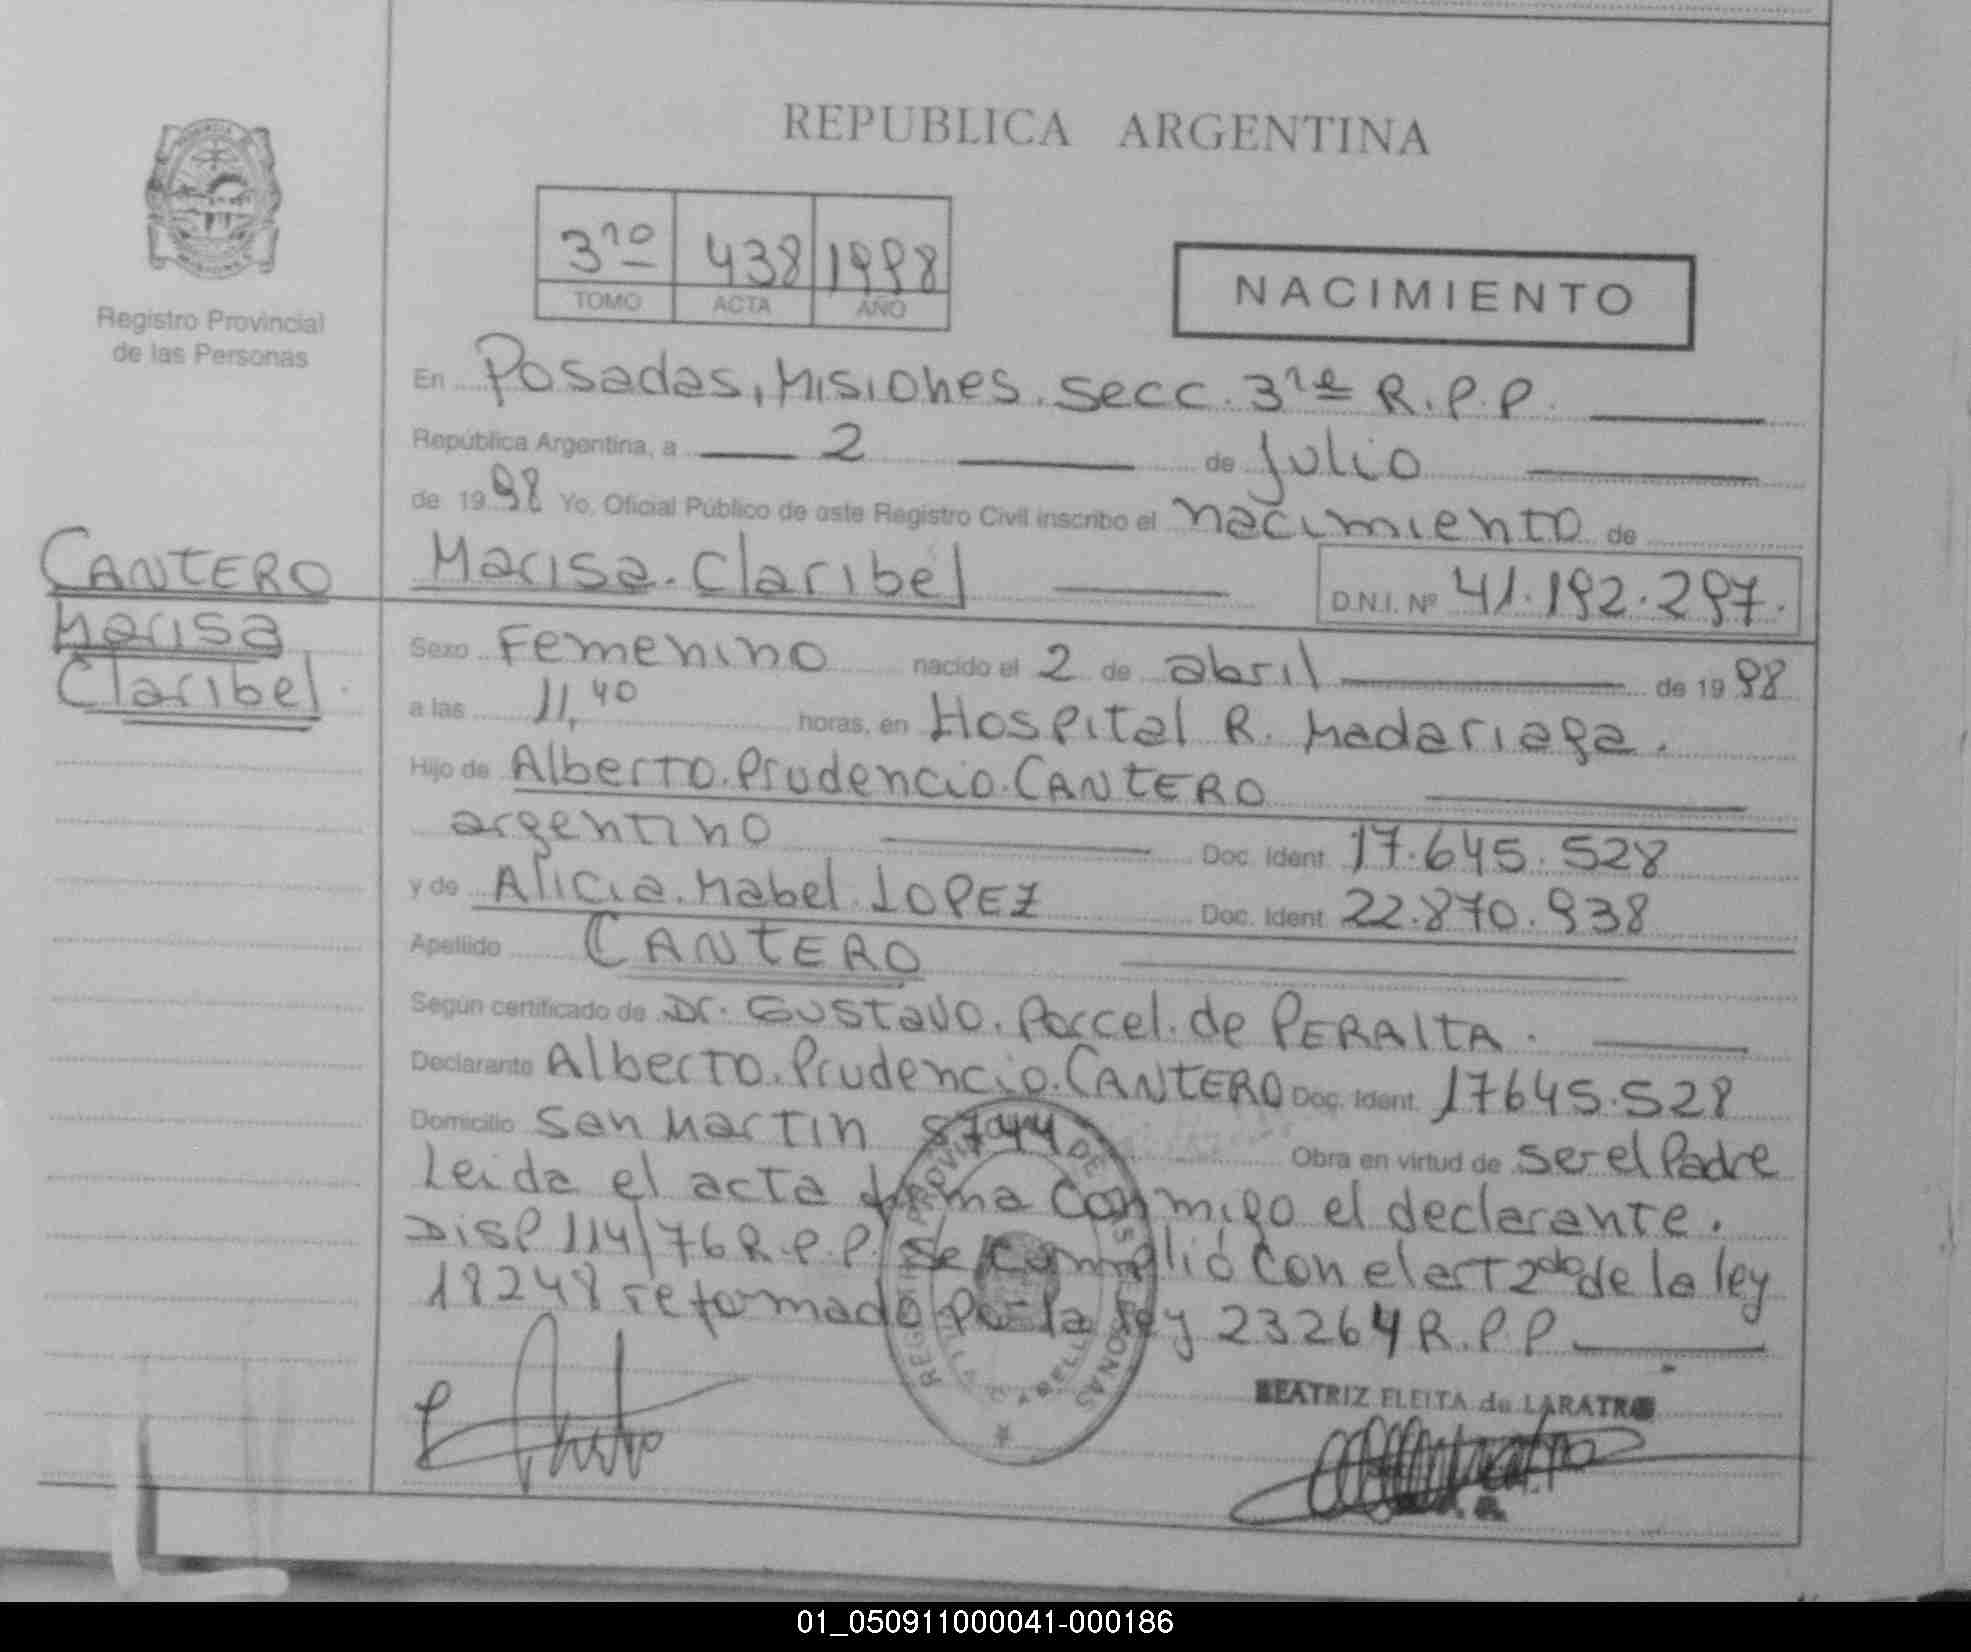 REPUBLICA ARGENTINA
Registro Provincial
de las Personas
3ro 438 1998
TOMO ACTA AÑO
NACIMIENTO
En Posadas, Misiones. Secc. 3ra R.P.P.
República Argentina, a 2 de julio
de 1998 Yo, Oficial Público de este Registro Civil inscribo el nacimiento de
Marisa. Claribel D.N.I. Nº 41.192.297.
CANTERO
Marisa
Claribel
Sexo Femenino nacido el 2 de abril de 1998
a las 11,40 horas, en Hospital R. Madariaga.
Hijo de Alberto. Prudencio. CANTERO
argentino Doc. Ident. 17.645.528
y de Alicia. Mabel. LOPEZ Doc. Ident. 22.870.938
Apellido CANTERO
Según certificado de Dr. Gustavo. Porcel. de PERALTA.
Declarante Alberto. Prudencio. CANTERO Doc. Ident. 17645.528
Domicilio San Martin 8744 Obra en virtud de ser el Padre
Leida el acta firma conmigo el declarante.
Disp 114/76 R.P.P. se cumplió con el art 2do de la ley
18248 reformado por la ley 23264 R.P.P.
BEATRIZ FLEITA de LARATRO
01_050911000041-000186